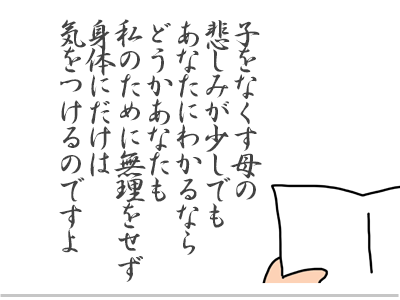 子をなくす母の
悲しみが少しでも
あなたにわかるなら
どうかあなたも
私のために無理をせず
身体にだけは
気をつけるのですよ